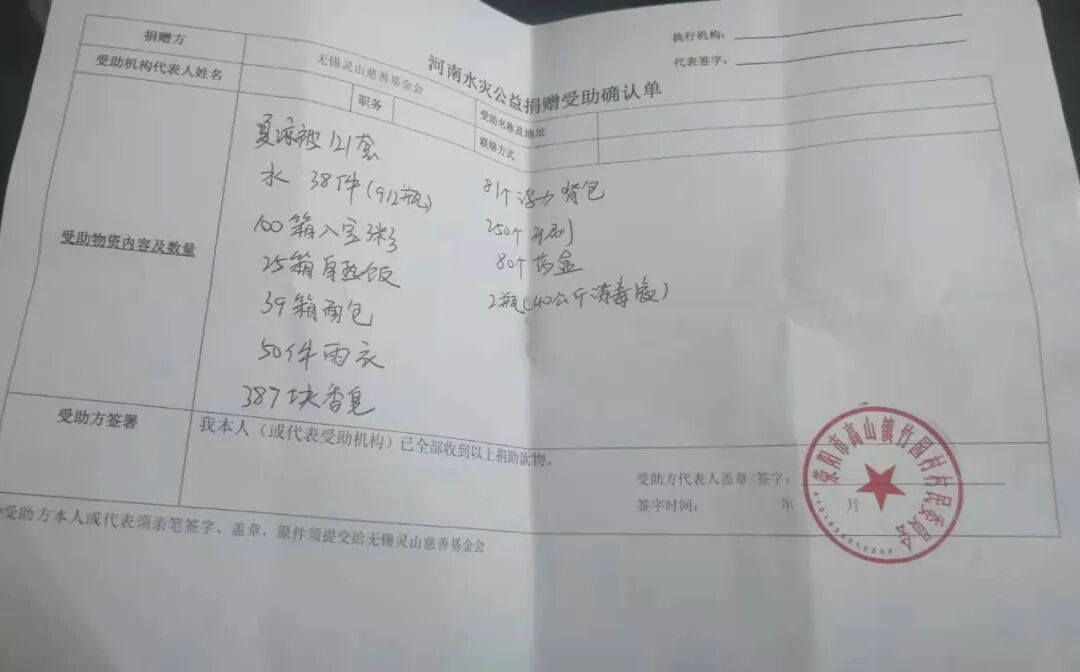 河南水灾公益捐赠受助确认单
执行机构:
代表签字:
捐赠方 无锡灵山慈善基金会 受助名称及地址
受助机构代表人姓名 职务 联络方式
受助物资内容及数量
夏凉被 121套
水 38件(912瓶)
100箱八宝粥
25箱自热饭
39箱面包
50件雨衣
387块香皂
81个浮力背包
250个
80个药盒
2瓶(40公斤消毒液)
受助方签署 我本人(或代表受助机构)已全部收到以上捐助款物。
受助方代表人盖章/签字:
签字时间: 年 月
受助方本人或代表须亲笔签字、盖章,原件须提交给无锡灵山慈善基金会
荥阳市高山镇竹园村村民委员会